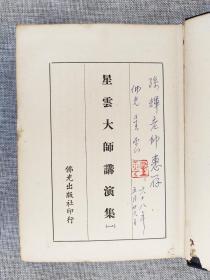 老師惠存
佛光 星雲
六十八年
星雲大師講演集 [一]
佛光出版社印行